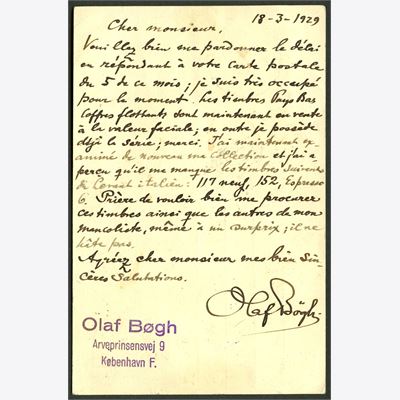 18-3-1929
Cher monsieur,
Veuillez bien me pardonner le délai
en répondant à votre carte postale
du 5 de ce mois; je suis très occupé
pour le moment. Les timbres Pays Bas
Coffres flottants sont maintenant en vente
à la valeur faciale; en outre je possède
déjà la série; merci. J'ai maintenant ex
aminé de nouveau ma collection et j'ai a
perçu qu'il me manque les timbres suivants
de Levant italien: 117 neuf, 152, Espresso
6. Prière de vouloir bien me procurer
ces timbres ainsi que les autres de mon
mancoliste, même à un surprix; il ne
hâte pas.
Agréez cher monsieur mes bien sin-
cères salutations.
Olaf Bøgh.
Olaf Bøgh
Arveprinsensvej 9
København F.